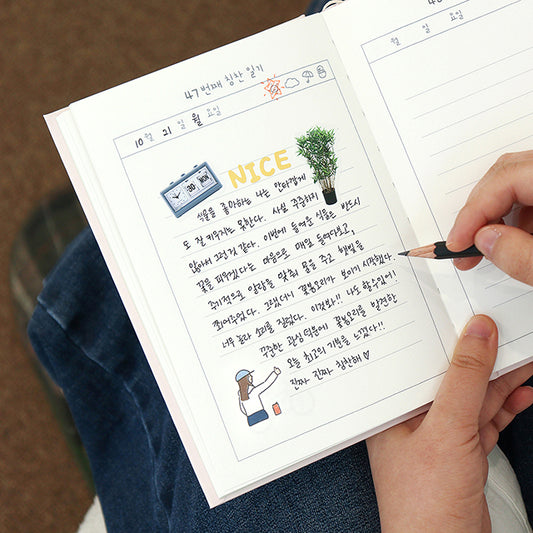 47번째 칭찬 일기
10월 21일 월요일
NICE
30 MON
식물을 좋아하는 나는 안타깝게
도 잘 키우지는 못한다. 사실 꾸준하지
않아서 그런것 같다. 이번에 들여온 식물은 반드시
꽃을 피우겠다는 마음으로 매일 들여다보고,
주기적으로 양분을 맞춰 물을 주고 햇빛을
쬐어주었다. 그랬더니 꽃봉오리가 보이기 시작했다.
너무 놀라 소리를 질렀다. 이것봐!! 나도 할수있어!!
꾸준한 관심 덕분에 꽃봉오리를 발견한
오늘 최고의 기분을 느꼈다!!
진짜 진짜 칭찬해 ♡
월 일 요일